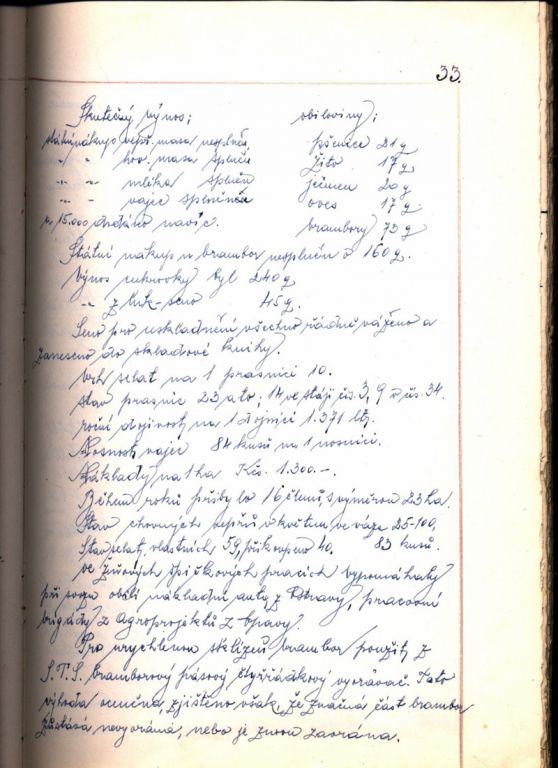 33.
Skutečný výnos: obiloviny:
státní nákup vepř. masa nesplněn pšenice 21 q
-"- " hov. masa splněn žito 17 q
-"- -"- mléka splněn ječmen 20 q
-"- -"- vajec splněn oves 17 q
a 15.000 dodáno navíc. brambory 73 q
Státní nákup u brambor nesplněn o 160 q.
Výnos cukrovky byl 240 q
-"- seno 45 q.
Seno pro uskladnění všechno řádně váženo a
zaneseno do skladové knihy.
selat na 1 prasnici 10.
stav prasnic 23 a to: 14 ve stáji čís. 3, 9 v čís. 34.
roční dojivost na 1 dojnici 1.371 ltr.
Nosnost vajec 84 kusů na 1 nosnici.
Náklady na 1 ha Kčs. 1.300.-.
Během roku přibylo 16 členů, s výměrou 23 ha.
Stav chovných vepřů v květnu ve váze 25-100,
Stav selat, vlastních 59, přikoupeno 40. 83 kusů.
Ve žňových špičkových pracích vypomáhaly
při svozu obilí nákladní auta z Ostravy, pracovní
brigády z Agroprojektu z Opavy.
Pro urychlenou sklizeň brambor použit z
S.T.S. bramborový pásový čtyřřádkový vyorávač. Tato
výhoda oceněna, zjištěno však, že značná část brambor
zůstává nevyoráná, nebo je znovu zaorána.